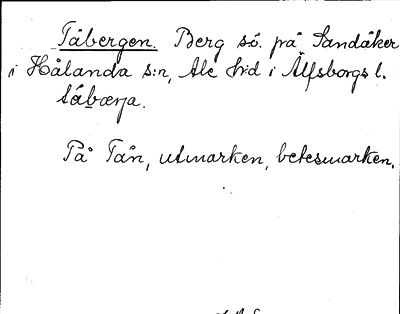 Tåbergen. Berg sö. på Sandåker
i Hålanda s:n, Ale h:d i Älfsborgs l.
tå̀bærja.
På Tån, utmarken, betesmarken.